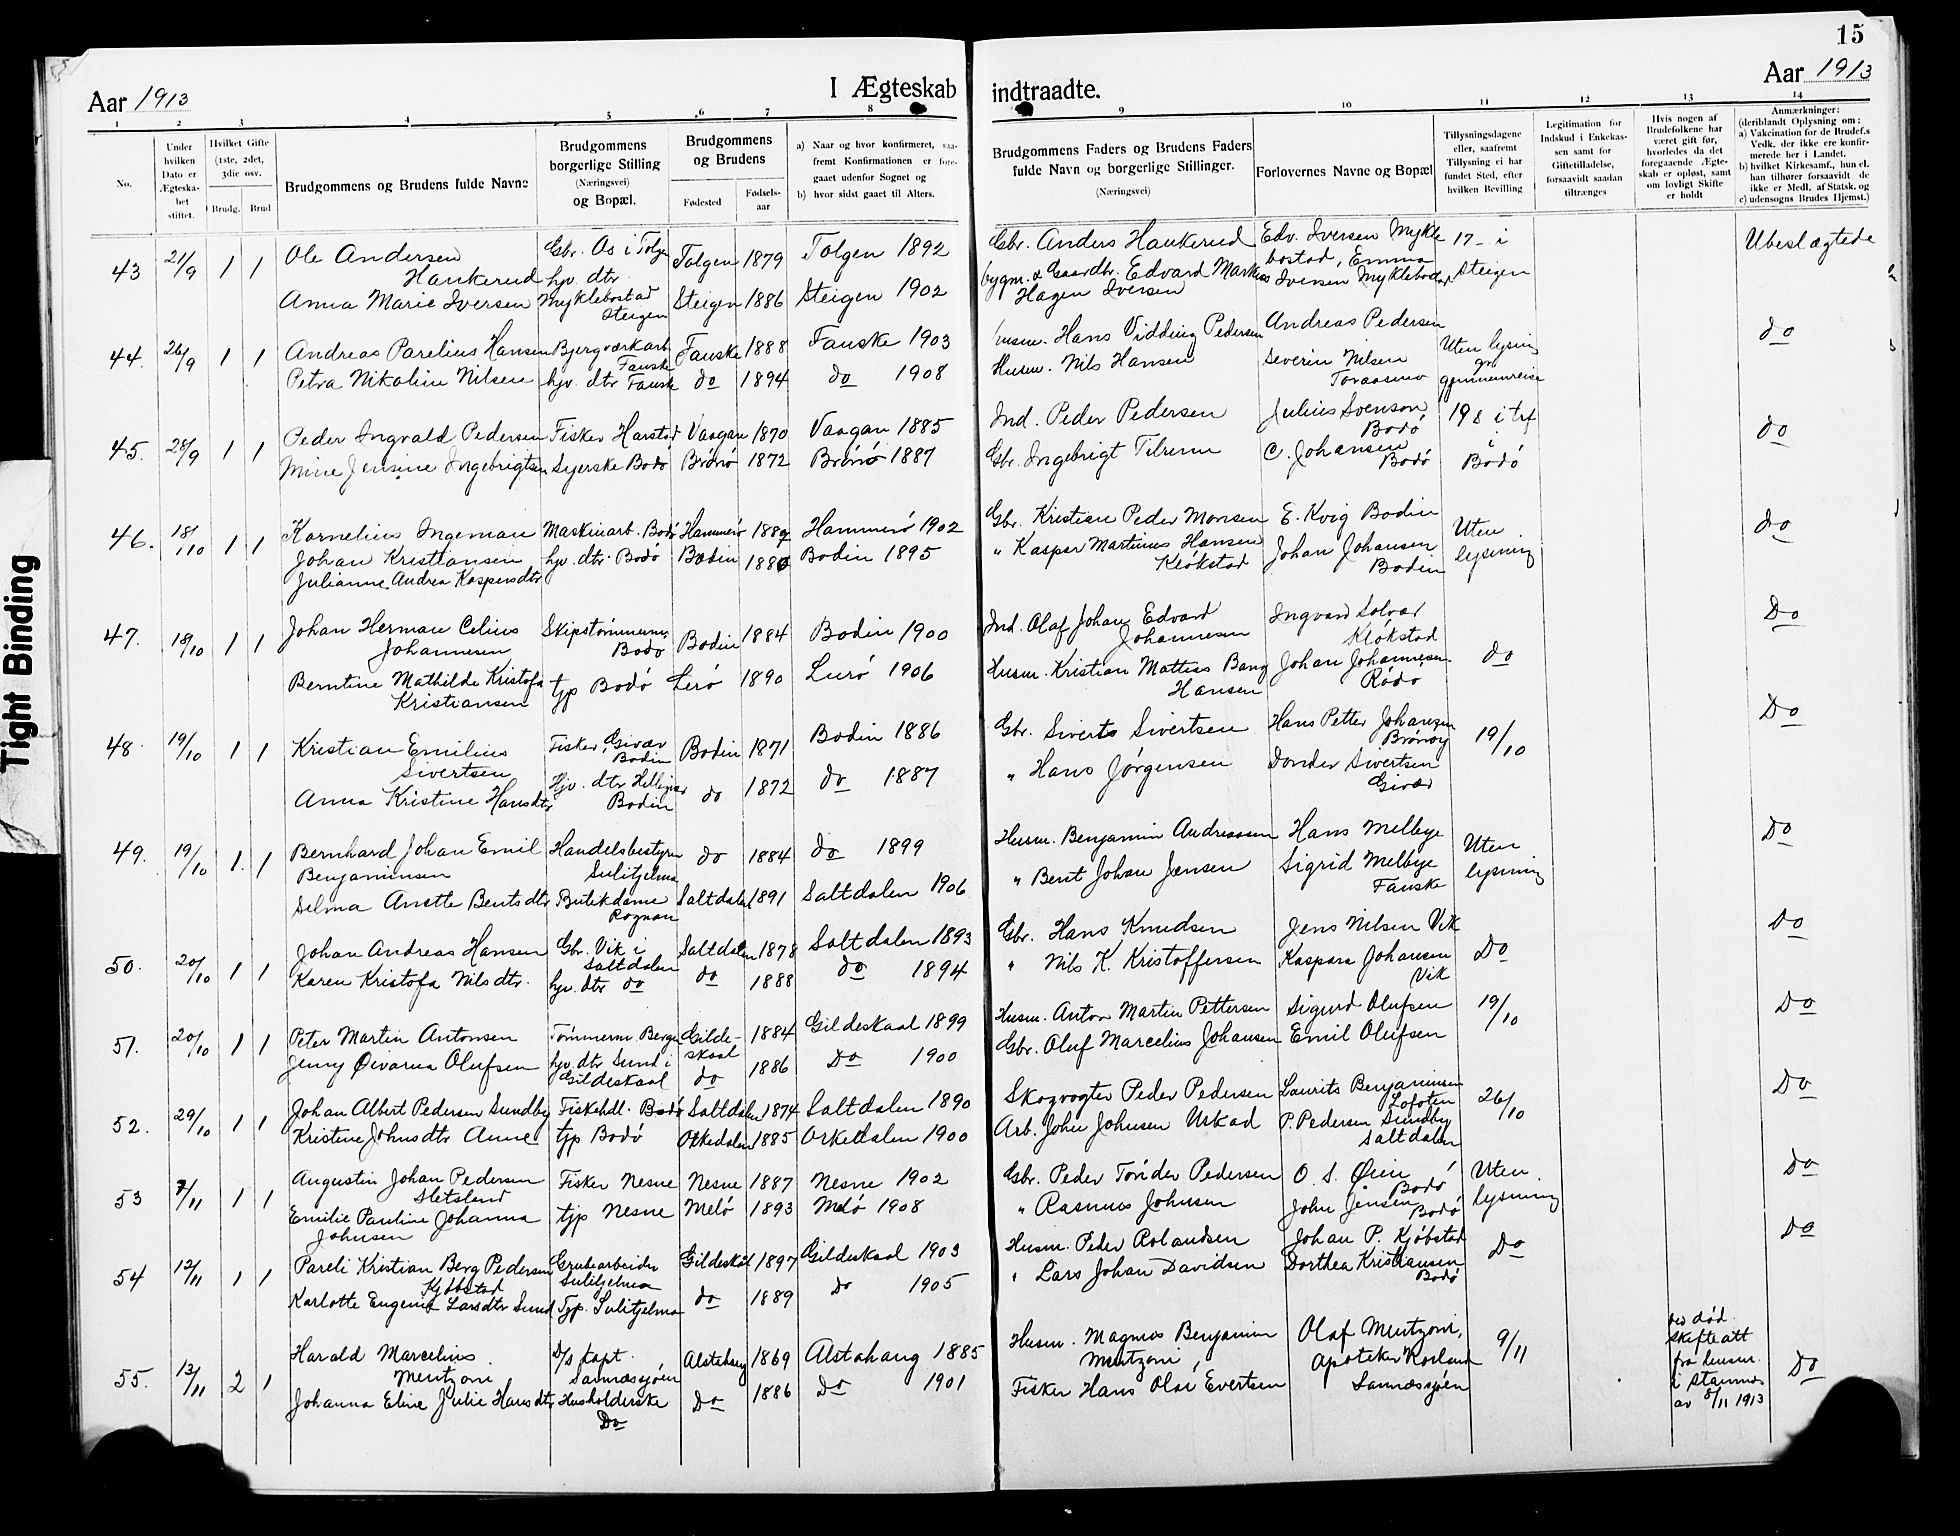 15
Aar 1913
I Ægteskab indtraadte.
Aar 1913
1 2 3 4 5 6 7 8 9 10 11 12 13 14
No.
Under hvilken Dato er Ægteska-bet stiftet.
Hvilket Gifte (1ste, 2det, 3die osv.
Brudg. Brud
Brudgommens og Brudens fulde Navne
Brudgommens borgerlige Stilling (Næringsvei) og Bopæl.
Brudgommens og Brudens
Fødested
Fødsels-aar
a) Naar og hvor konfirmeret, saa-fremt Konfirmationen er fore-gaaet udenfor Sognet og
b) hvor sidst gaaet til Alters.
Brudgommens Faders og Brudens Faders fulde Navn og borgerlige Stillinger.
(Næringsvei)
Forlovernes Navne og Bopæl
Tillysningsdagene eller, saafremt Tillysning ei har fundet Sted, efter hvilken Bevilling
Legitimation for Indskud i Enkekas-sen samt for Giftetilladelse, forsaavidt saadan tiltrænges
Hvis nogen af Brudefolkene har været gift før, hvorledes da det foregaaende Ægte-skab er opløst, samt om lovligt Skifte er holdt
Anmærkninger: (deriblandt Oplysning om: a) Vakcination for de Brudef.s Vedk. der ikke ere konfir-merede her i Landet. b) hvilket Kirkesamf., hun el. han tilhører forsaavidt de ikke er Medl. af Statsk. og c) udensogns Brudes Hjemst.)
43 21/9 1 1 Ole Andersen Haukerud Gbr. Os i Tolgen Tolgen 1879 Tolgen 1892 Gbr. Anders Haukerud Edv. Iversen Mykle bostad, Emma 17- i Steigen Ubeslægtede
Anna Marie Iversen hjv. dtr. Myklebostad Steigen Steigen 1886 Steigen 1902 bygm. & Gaardbr. Edvard Markus Hagen Iversen Iversen Myklebostad
44. 26/9 1 1 Andreas Parelius Hansen Bjergverkarb. Fauske Fauske 1888 Fauske 1903 Husm. Hans Vidding Pedersen Andreas Pedersen Uten lysning gr gjennemreise do
Petra Nikoline Nilsen hjv. dtr Fauske do 1894 do 1908 Husm. Nils Hansen Severin Nilsen
45. 28/9 1 1 Peder Ingvald Pedersen Fisker Harstad Vaagan 1870 Vaagan 1885 Ind. Peder Pedersen Julius Svenson Bodø 19 8 i Bodø do
Mine Jensine Ingebrigtsen Syerske Bodø Brønø 1872 Brønø 1887 Gbr. Ingebrigt Tilrem C. Johansen Bodø
46. 18/10 1 1 Kornelius Ingeman Johan Kristiansen Maskinarb. Bodø Hammerø 1887 Hammerø 1902 Gbr. Kristian Peder Monsen E. Kvig Bodin Uten lysning do
Julianne Andrea Kaspersdtr hjv. dtr. Bodø Bodin 1880 Bodin 1895 " Kasper Martinus Hansen Kløkstad Johan Johansen Bodin
47. 18/10 1 1 Johan Herman Celius Johannesen Skipstømmerm. Bodø Bodin 1884 Bodin 1900 Ind. Olaf Johan Edvard Johannesen Ingvard Solvar Kløkstad do Do
Berntine Mathilde Kristofa Kristiansen tjp Bodø Lurø 1890 Lurø 1906 Husm. Kristian Mattias Bang Hansen Johan Johannesen Rødø
48. 19/10 1 1 Kristian Emilius Sivertsen Fisker Givær Bodin Bodin 1871 Bodin 1886 Gbr. Siverts Sivertsen Hans Petter Johansen Brønøy 19/10 Do
Anna Kristine Hansdtr Hjv. dtr Helligvær Bodin do 1872 do 1887 " Hans Jørgensen Donder Sivertsen Givær
49. 19/10 1. 1 Bernhard Johan Emil Benjaminsen Handelsbestyrer Sulitjelma do 1884 do 1899 Husm. Benjamin Andreassen Hans Melbye Uten lysning Do
Selma Anette Bentsdtr Butikdame Rognan Saltdalen 1891 Saltdalen 1906 " Bent Johan Jensen Sigrid Melbye Fauske
50. 20/10 1 1 Johan Andreas Hansen Gbr. Vik i Saltdalen Saltdalen 1878 Saltdalen 1893 Gbr. Hans Knudsen Jens Nilsen Vik Do Do
Karen Kristofa Nilsdtr. hjv. dtr do do 1888 do 1894 " Nils K. Kristoffersen Kaspara Johansen Vik
51. 20/10 1 1 Peter Martin Antonsen Tømmerm Bergen Gilde-skaal 1884 Gildeskaal 1899 Husm. Anton Martin Pettersen Sigurd Olufsen 19/10 Do
Jenny Øivarna Olufsen hjv. dtr Sund i Gildeskaal do 1886 Do 1900 Gbr. Oluf Marcelius Johansen Emil Olufsen
52. 29/10 1 1 Johan Albert Pedersen Sundby Fiskehdl. Bodø Saltdalen 1874 Saltdalen 1890 Skogvogter Peder Pedersen Laurits Benjaminsen Lofoten 26/10 Do
Kristine Johnsdtr Anne tjp Bodø Orkedalen 1885 Orkedalen 1900 Arb. John Johnsen Uskad P. Pedersen Sundby Saltdalen
53 7/11 1 1 Augustin Johan Pedersen Sletsland Fisker Nesne Nesne 1887 Nesne 1902 Gbr. Peder Tonder Pedersen O. S. Øien Bodø Uten lysning Do
Emilie Pauline Johanna Johnsen tjp Nesne Melø 1893 Melø 1908 " Rasmus Johnsen John Jensen Bodø
54 12/11 1 1 Pareli Kristian Berg Pedersen Kjøbstad Grubearbeider Sulitjelma Gildeskål 1897 Gildeskaal 1903 Husm. Peder Rolandsen Johan P. Kjøbstad Do Do
Karlotte Eugenie Larsdtr Sund Tjp. Sulitjelma do 1889 Do 1905 " Lars Johan Davidsen Dorthea Kristiansen Bodø
55. 13/11 2 1 Harald Marcelius Mentzoni D/s kapt. Sannessjøen Alstahaug 1869 Alstahaug 1885 Husm. Magnus Benjamin Mentzoni, Olaf Mentzoni, 9/11 ved død. skifteatt fra lensm. i Stamnes av 8/11 1913 Do
Johanna Eline Julie Hansdtr Husholderske Do Do 1886 Do 1901 Fisker Hans Olai Evertsen Apoteker Sannessjøen
Tight Binding